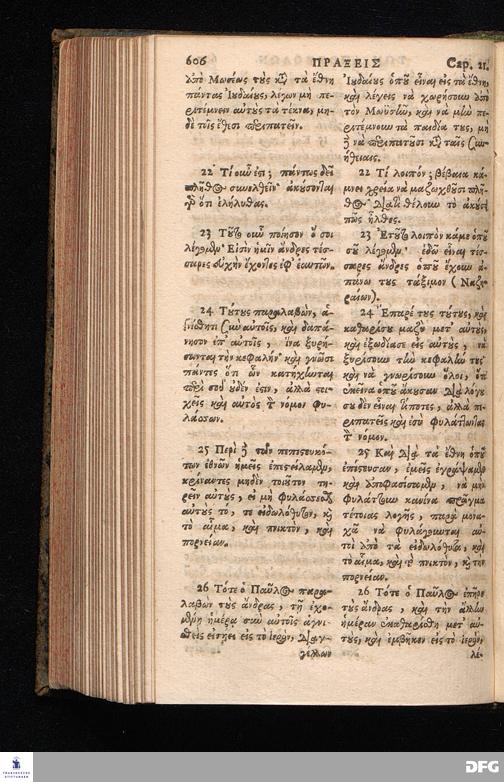 606 ΠΡΑΞΕΙΣ Cap. 21.
ἀπὸ Μωσέως τοὺς κατὰ τὰ ἔθνη
πάντας Ἰουδαίους, λέγων μὴ πε-
ριτέμνειν αὐτοὺς τὰ τέκνα, μη-
δὲ τοῖς ἔθεσι περιπατεῖν.
22 Τί οὖν ἐστι; πάντως δεῖ
πλῆθος συνελθεῖν· ἀκούσονται
γὰρ ὅτι ἐλήλυθας.
23 Τοῦτο οὖν ποίησον ὅ σοι
λέγομεν· Εἰσὶν ἡμῖν ἄνδρες τέσ-
σαρες εὐχὴν ἔχοντες ἐφ' ἑαυτῶν.
24 Τούτους παραλαβὼν, ἁ-
γνίσθητι σὺν αὐτοῖς, καὶ δαπά-
νησον ἐπ' αὐτοῖς, ἵνα ξυρή-
σωνται τὴν κεφαλήν· καὶ γνῶσι
πάντες ὅτι ὧν κατήχηνται
περὶ σοῦ οὐδέν ἐστιν, ἀλλὰ στοι-
χεῖς καὶ αὐτὸς τὸν νόμον φυ-
λάσσων.
25 Περὶ δὲ τῶν πεπιστευκό-
των ἐθνῶν ἡμεῖς ἐπεστείλαμεν,
κρίναντες μηδὲν τοιοῦτον τη-
ρεῖν αὐτοὺς, εἰ μὴ φυλάσσεσθαι
αὐτοὺς τό, τε εἰδωλόθυτον, καὶ
τὸ αἷμα, καὶ πνικτὸν, καὶ
πορνείαν.
26 Τότε ὁ Παῦλος παρα-
λαβὼν τοὺς ἄνδρας, τῇ ἐχο-
μένῃ ἡμέρᾳ σὺν αὐτοῖς ἁγνι-
σθεὶς εἰσῄει εἰς τὸ ἱερὸν, διαγ-
γέλλων
Ἰουδαίους ὁποῦ εἶναι εἰς τὰ ἔθνη,
καὶ λέγεις νὰ χωρήσουν ἀπὸ
τὸν Μωϋσῆν, καὶ νὰ μὴν πε-
ριτέμνουν τὰ παιδία τους, μη
δὲ νὰ περιπατοῦσι κατὰ ταῖς συν-
ήθειαις.
22 Τί λοιπόν; βέβαια κά-
μνει χρεία νὰ μαζωχθοῦσι πλῆ-
θος· διατὶ θέλουν τὸ ἀκούσει
πῶς ἦλθες.
23 Ἐτοῦτο λοιπὸν κάμε ὁποῦ
σοῦ λέγομεν· ἐδῶ εἶναι τέσ-
σαρες ἄνδρες ὁποῦ ἔχουν ἀ-
πάνω τους τάξιμον (Ναζι-
ραίων).
24 Ἔπαρέ τους τούτους, καὶ
καθαρίσου μαζὺ μετ' αὐτοὺς,
καὶ ἐξωδίασε εἰς αὐτοὺς, νὰ
ξυρίσουν τὴν κεφαλήν τους
καὶ νὰ γνωρίσουν ὅλοι, ὅτι
ἐκεῖνα ὁποῦ ἄκουσαν διὰ λόγου
σου δὲν εἶναι τίποτες, ἀλλὰ πε-
ριπατεῖς καὶ ἐσὺ φυλάττωντας
τὸν νόμον.
25 Καὶ διὰ τὰ ἔθνη ὁποῦ
ἐπίστευσαν, ἐμεῖς ἐγράψαμεν
καὶ ἀποφασίσαμεν, νὰ μὴν
φυλάττουν κανένα πρᾶγμα
τέτοιας λογῆς, παρὰ μονα-
χὰ νὰ φυλάγωνται αὐ-
τοὶ ἀπὸ τὰ εἰδωλόθυτα, καὶ
τὸ αἷμα, καὶ τὸ πνικτὸν, καὶ τὴν
πορνείαν.
26 Τότε ὁ Παῦλος ἐπῆρε
τοὺς ἄνδρας, καὶ τὴν ἄλλην
ἡμέραν ἐκαθαρίσθη μετ' αὐ-
τοὺς, καὶ ἐμβῆκεν εἰς τὸ ἱερὸν,
λέ-
FRANCKESCHE
STIFTUNGEN
DFG